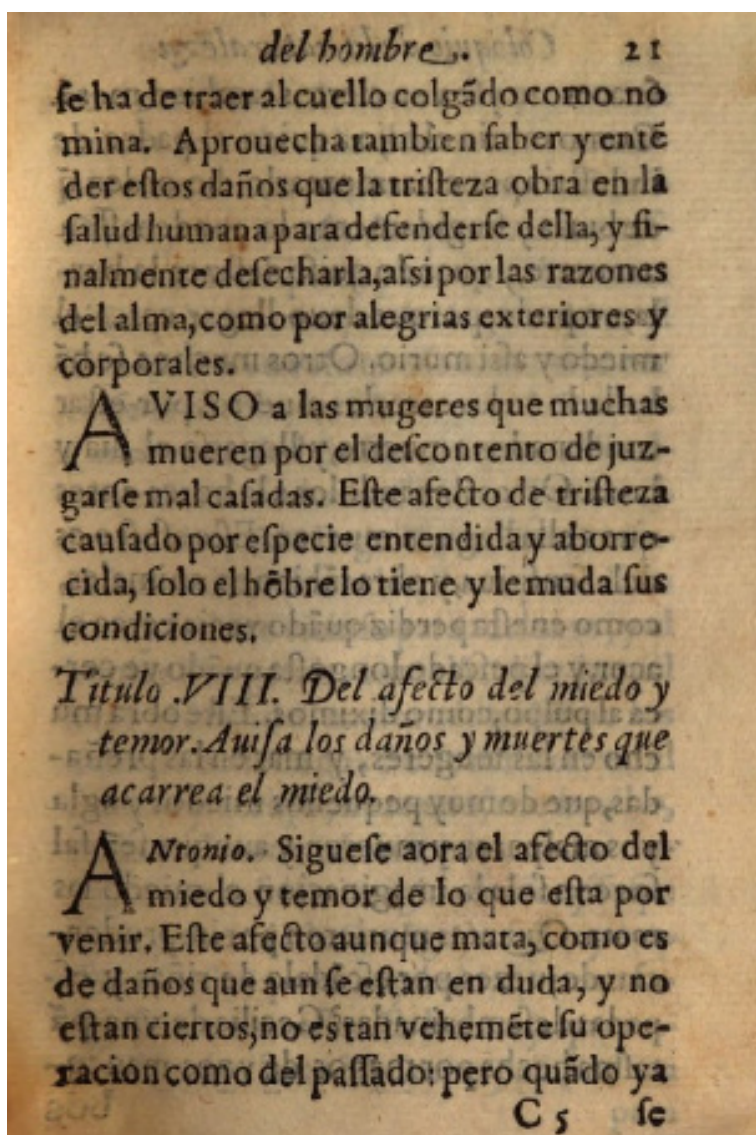 del hombre. 21
ſe ha de traer al cuello colgãdo como no
mina. Aprouecha tambien ſaber y entẽ
der eſtos daños que la triſteza obra en la
ſalud humana para defenderſe della, y fi-
nalmente deſecharla, aſsi por las razones
del alma, como por alegrias exteriores y
corporales.
AVISO a las mugeres que muchas
mueren por el deſcontento de juz-
garſe mal caſadas. Eſte afecto de triſteza
cauſado por eſpecie entendida y aborre-
cida, ſolo el hõbre lo tiene y le muda ſus
condiciones.
Titulo .VIII. Del afecto del miedo y
temor. Auiſa los daños y muertes que
acarrea el miedo.
ANtonio. Sigueſe aora el afecto del
miedo y temor de lo que eſta por
venir. Eſte afecto aunque mata, como es
de daños que aun ſe eſtan en duda, y no
eſtan ciertos, no es tan vehemẽte ſu ope-
racion como del paſſado: pero quãdo ya
C 5 ſe